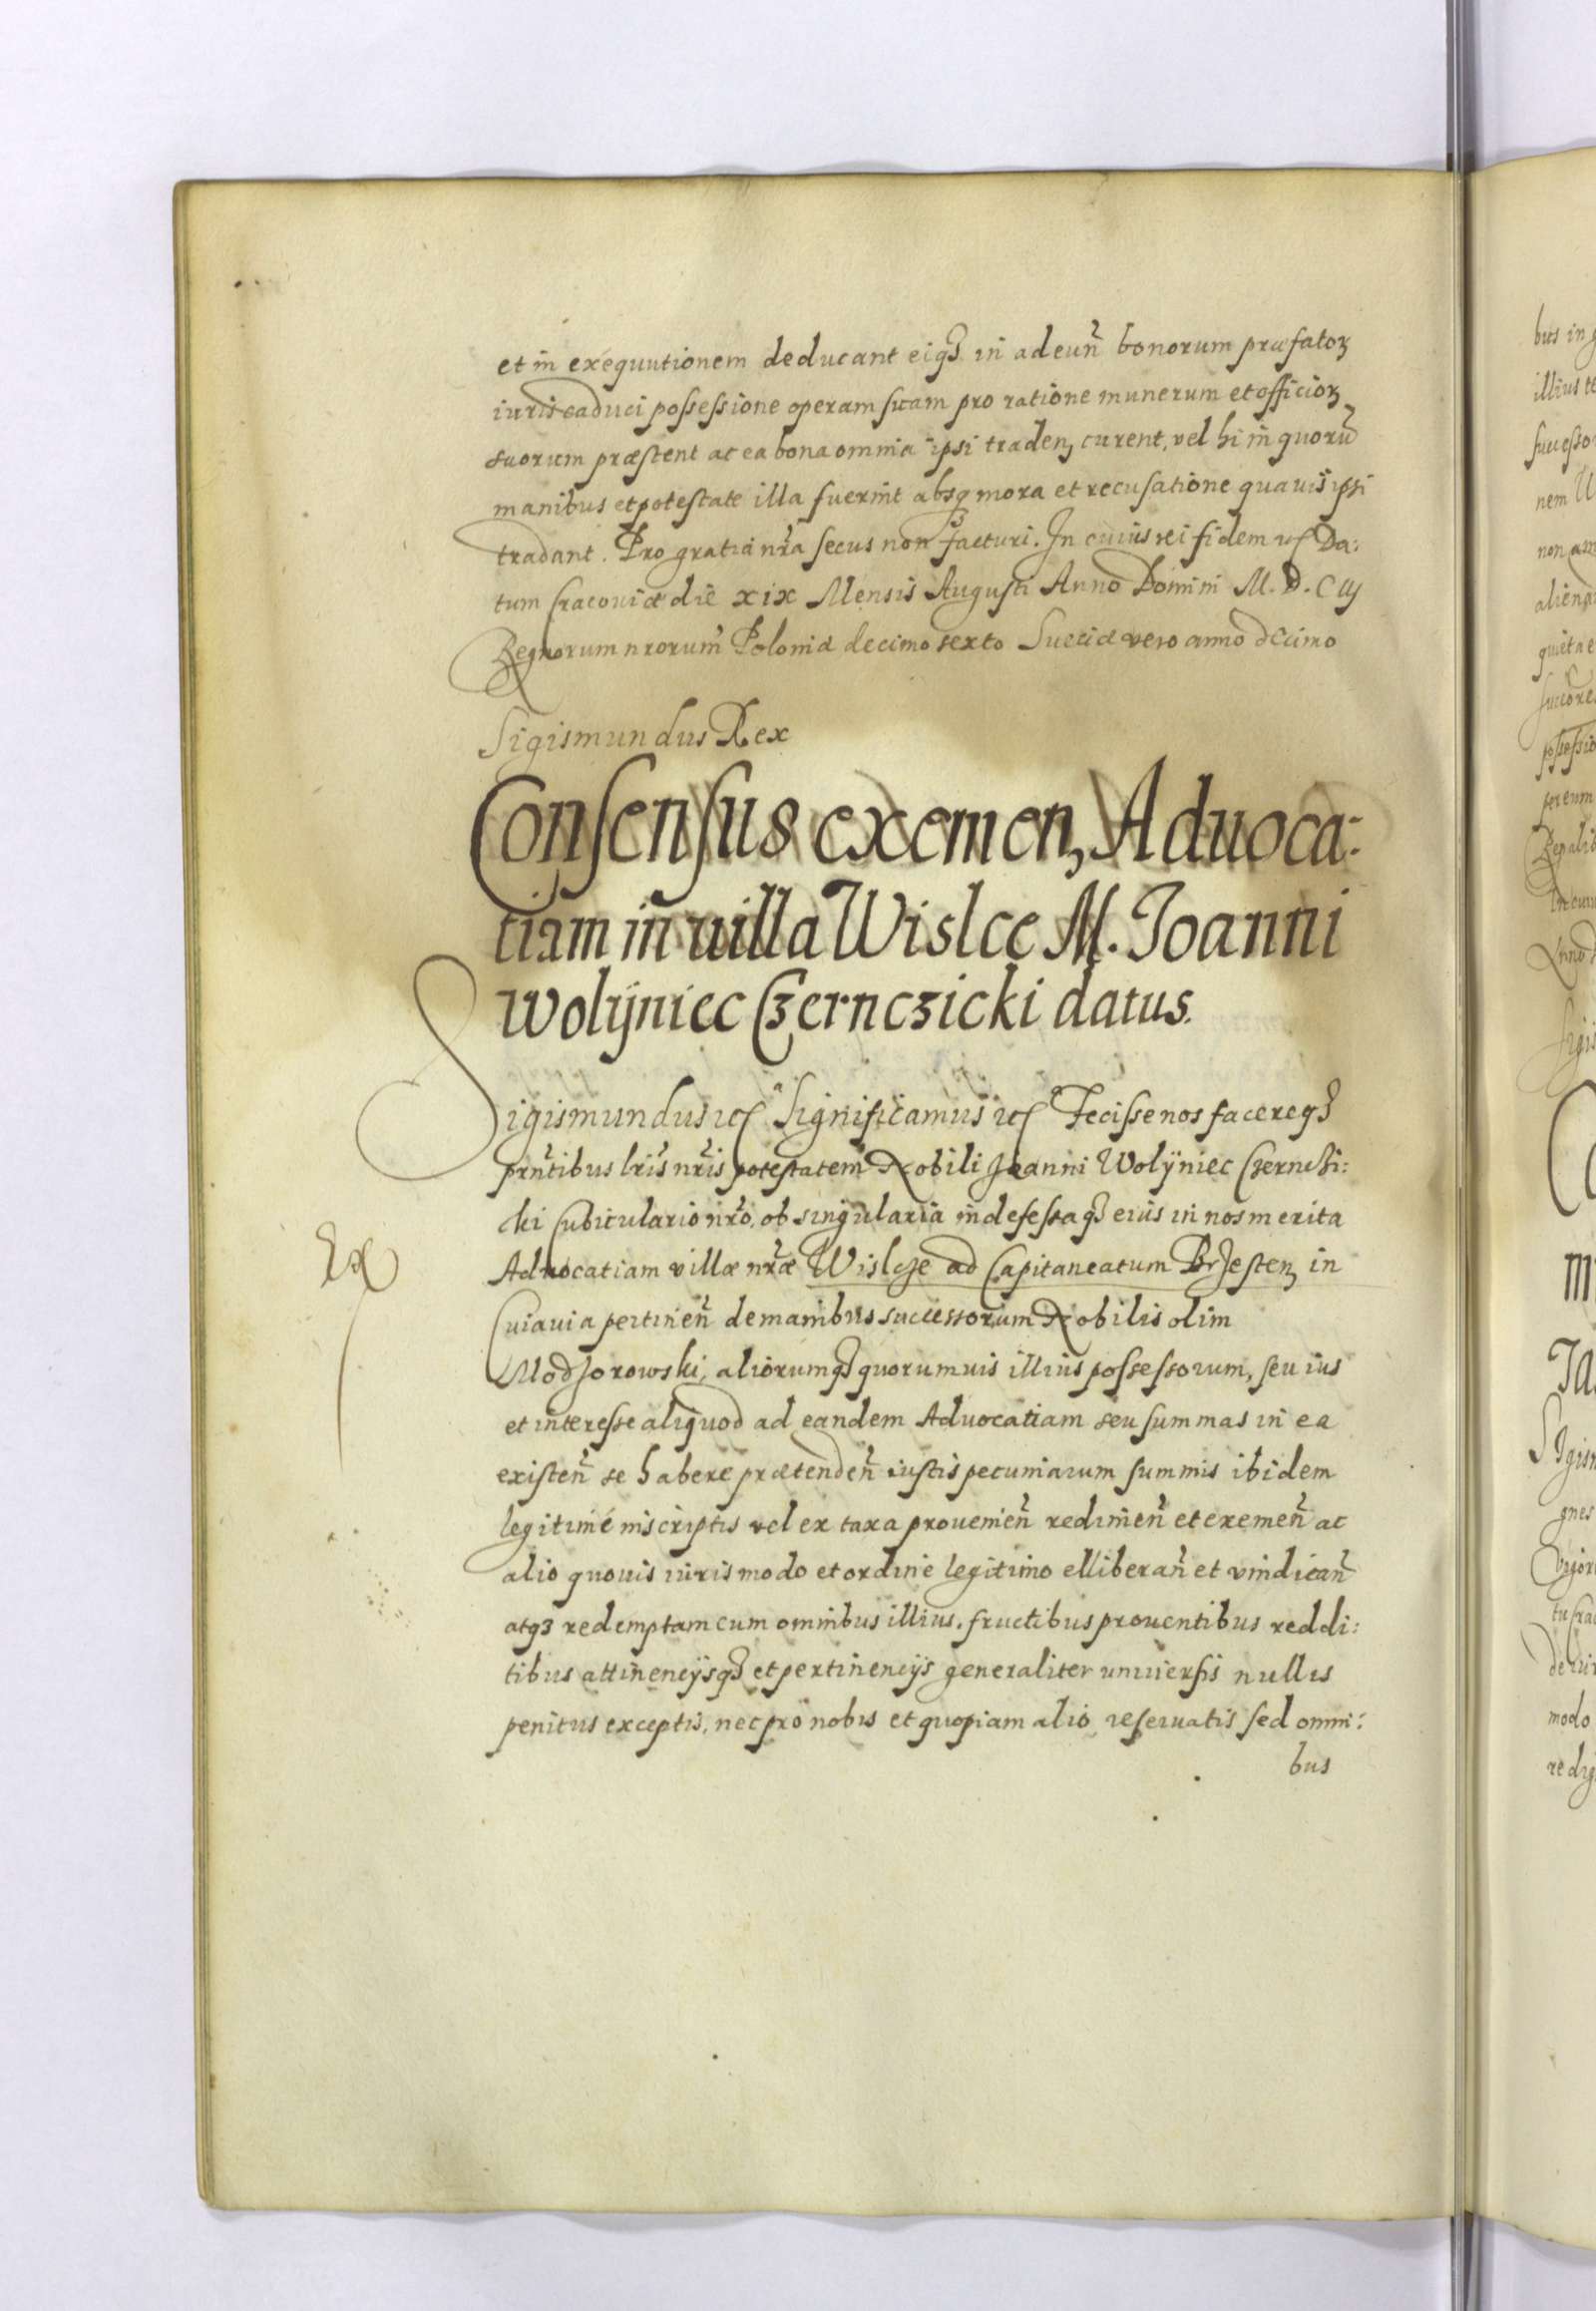 et in exequutionem deducant eiq₃ in adeuñ bonorum præfatoꝝ
iuris caduci possessione operam suam pro ratione munerum et officioꝝ
suorum præstent ac ea bona omnia ipsi traden, curent, vel hi in quorū
manibus et potestate illa fuerint absqꝫ mora et recusatione quauis ipsi
tradant. Pro gratia nr̃a secus non facturi. In cuius rei fidem etc Da:
tum Cracouiæ die xix Mensis Augusti Anno Domini M. D. C iij
Regnorum nrorum Poloniæ decimo sexto Sueciæ vero anno decimo
Sigismundus Rex
Consensus eximen, Aduoca:
tiam in uilla Wislce M. Joanni
Wolÿniec Czernczicki datus.
Sigismundus etc Significamus etc Fecisse nos facereqꝫ
prñtibus lris nr̃is potestatem Nobili Joanni Wolÿniec Czernchi:
cki Cubiculario nr̃o, ob singularia indefessaqꝫ eius in nos merita
Ex
Aduocatiam villæ nr̃æ Wislcze ad Capitaneatum Brzesten, in
Cuiauia pertineñ de manibus successorum Nobilis olim
Modzorowski, aliorumqꝫ quorumuis illius possessorum, seu ius
et interesse aliquod ad eandem Aduocatiam seu summas in ea
existeñ se habere prætendeñ iustis pecuniarum summis ibidem
legitimé inscriptis vel ex taxa prouenieñ redimeñ et exemeñ ac
alio quouis iuris modo et ordine legitimo elliberañ et vindicañ
atqꝫ redemptam cum omnibus illius. fructibus prouentibus reddi:
tibus attinencÿsqꝫ et pertinencÿs generaliter uniuersis nullis
penitus exceptis, nec pro nobis et quopiam alio reseruatis sed omni:
bus